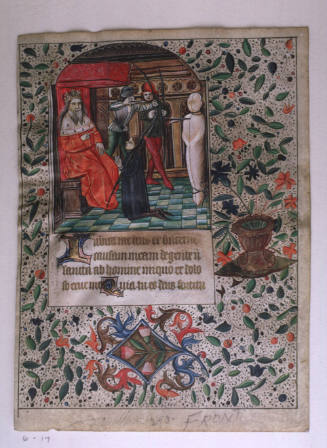 Iudica me deus et discerne
causam meam de gente n̄
sancta ab homine iniquo et dolo
so erue me Quia tu es deus fortitu